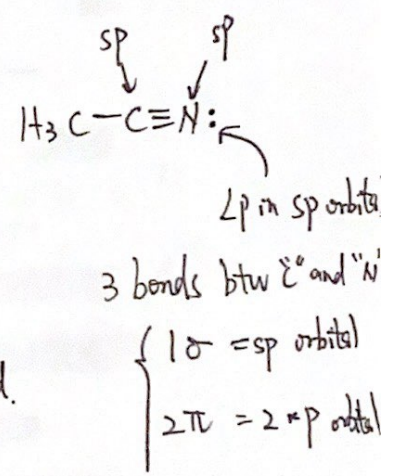 sp sp
H3C-C≡N:
Lp in sp orbital
3 bonds btw "C" and "N"
1σ = sp orbital
2π = 2*p orbital